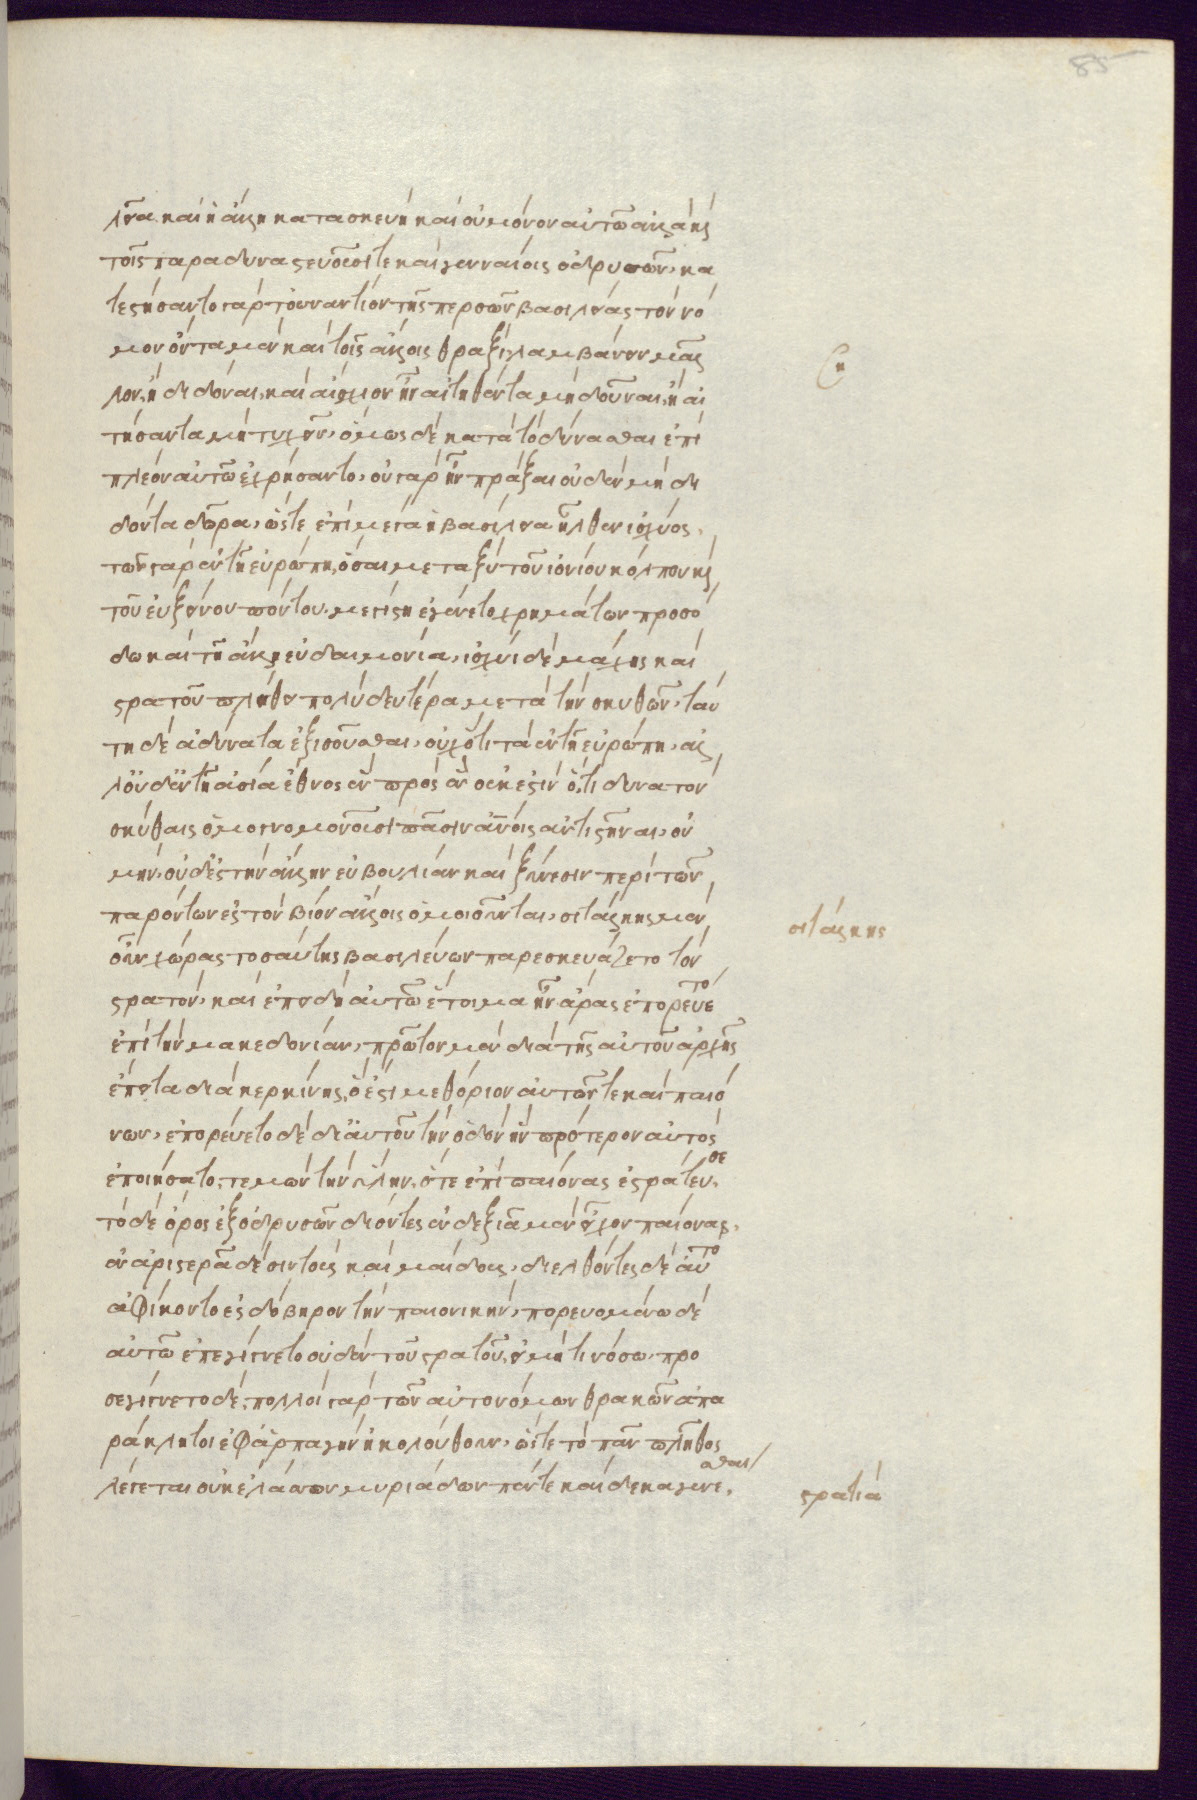 85
λεῖα καὶ ἡ ἄλλη κατασκευὴ καὶ οὐ μόνον αὐτῶ ἀλλὰ καὶ
τοῖς παραδυναστεύουσί τε καὶ γενναίοις ὀδρυσῶν, κα
τεστήσαντο γὰρ τοὐναντίον τῆς περσῶν βασιλείας τὸν νό
μον ὄντα μὲν καὶ τοῖς ἄλλοις θραξὶ λαμβάνειν μᾶλ
λον, ἢ διδόναι, καὶ αἴσχιον ἦν αἰτηθέντα μὴ δοῦναι, ἢ αἰ
τήσαντα μὴ τυχεῖν, ὅμως δὲ κατὰ τὸ δύνασθαι ἐπὶ
πλέον αὐτῶ ἐχρήσαντο, οὐ γὰρ ἦν πρᾶξαι οὐδὲν μὴ δι
δόντα δῶρα, ὥστε ἐπὶ μέγα ἡ βασιλεία ἦλθεν ἰσχύος,
τῶν γὰρ ἐν τῆ εὐρώπη, ὅσαι μεταξὺ τοῦ ἰονίου κόλπου καὶ
τοῦ εὐξείνου πόντου, μεγίστη ἐγένετο χρημάτων προσό
δω καὶ τῆ ἄλλη εὐδαιμονία, ἰσχύι δὲ μάχης καὶ
στρατοῦ πλήθει πολὺ δευτέρα μετὰ τὴν σκυθῶν, ταύ
τη δὲ ἀδύνατα ἐξισοῦσθαι, οὐχ ὅτι τὰ ἐν τῆ εὐρώπη, ἀλ
λ' οὐδ' ἐν τῆ ἀσία ἔθνος ἓν πρὸς ἓν οὐκ ἔστιν ὅ,τι δυνατὸν
σκύθαις ὁμογνωμονοῦσι πᾶσιν ἀντιστῆναι, οὐ
μὴν, οὐδ' ἐς τὴν ἄλλην εὐβουλίαν καὶ ξύνεσιν περὶ τῶν
παρόντων ἐς τὸν βίον ἄλλοις ὁμοιοῦνται, σιτάλκης μὲν
οὖν χώρας τοσαύτης βασιλεύων παρεσκευάζετο τὸν
στρατόν, καὶ ἐπειδὴ αὐτῶ ἑτοῖμα ἦν ἄρας ἐπορεύετο
ἐπὶ τὴν μακεδονίαν, πρῶτον μὲν διὰ τῆς αὐτοῦ ἀρχῆς
ἔπειτα διὰ κερκίνης, ὅ ἐστι μεθόριον αὐτῶν τε καὶ παιό
νων, ἐπορεύετο δὲ δι' αὐτοῦ τὴν ὁδὸν ἣν πρότερον αὐτὸς
ἐποιήσατο, τεμὼν τὴν ὕλην, ὅτε ἐπὶ παιόνας ἐστράτευσε,
τὸ δὲ ὄρος ἐξ ὀδρυσῶν διόντες ἐν δεξιᾶ μὲν εἶχον παίονας,
ἐν ἀριστερᾶ δὲ σιντοὺς καὶ μαίδους, διελθόντες δὲ αὐτὸ
ἀφίκοντο ἐς δόβηρον τὴν παιονικήν, πορευομένω δὲ
αὐτῶ ἀπεγίγνετο οὐδὲν τοῦ στρατοῦ, εἰ μή τι νόσω, προ
σεγίγνετο δέ, πολλοὶ γὰρ τῶν αὐτονόμων θρακῶν ἀπα
ράκλητοι ἐφ' ἁρπαγὴν ἠκολούθουν, ὥστε τὸ πᾶν πλῆθος
λέγεται οὐκ ἔλασσον μυριάδων πέντε καὶ δέκα γενέσθαι,
ση
σιτάλκης
στρατιά